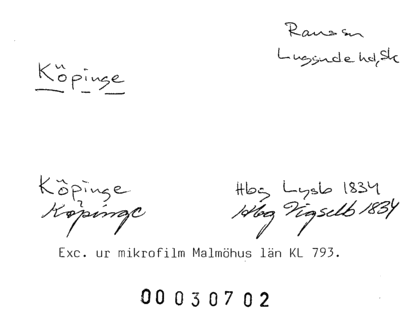 Raus sn
Luggude hd, Sk
Köpinge
Köpinge Hbg Lysb 1834
Köpinge Hbg Vigselb 1834
Exc. ur mikrofilm Malmöhus län KL 793.
00030702